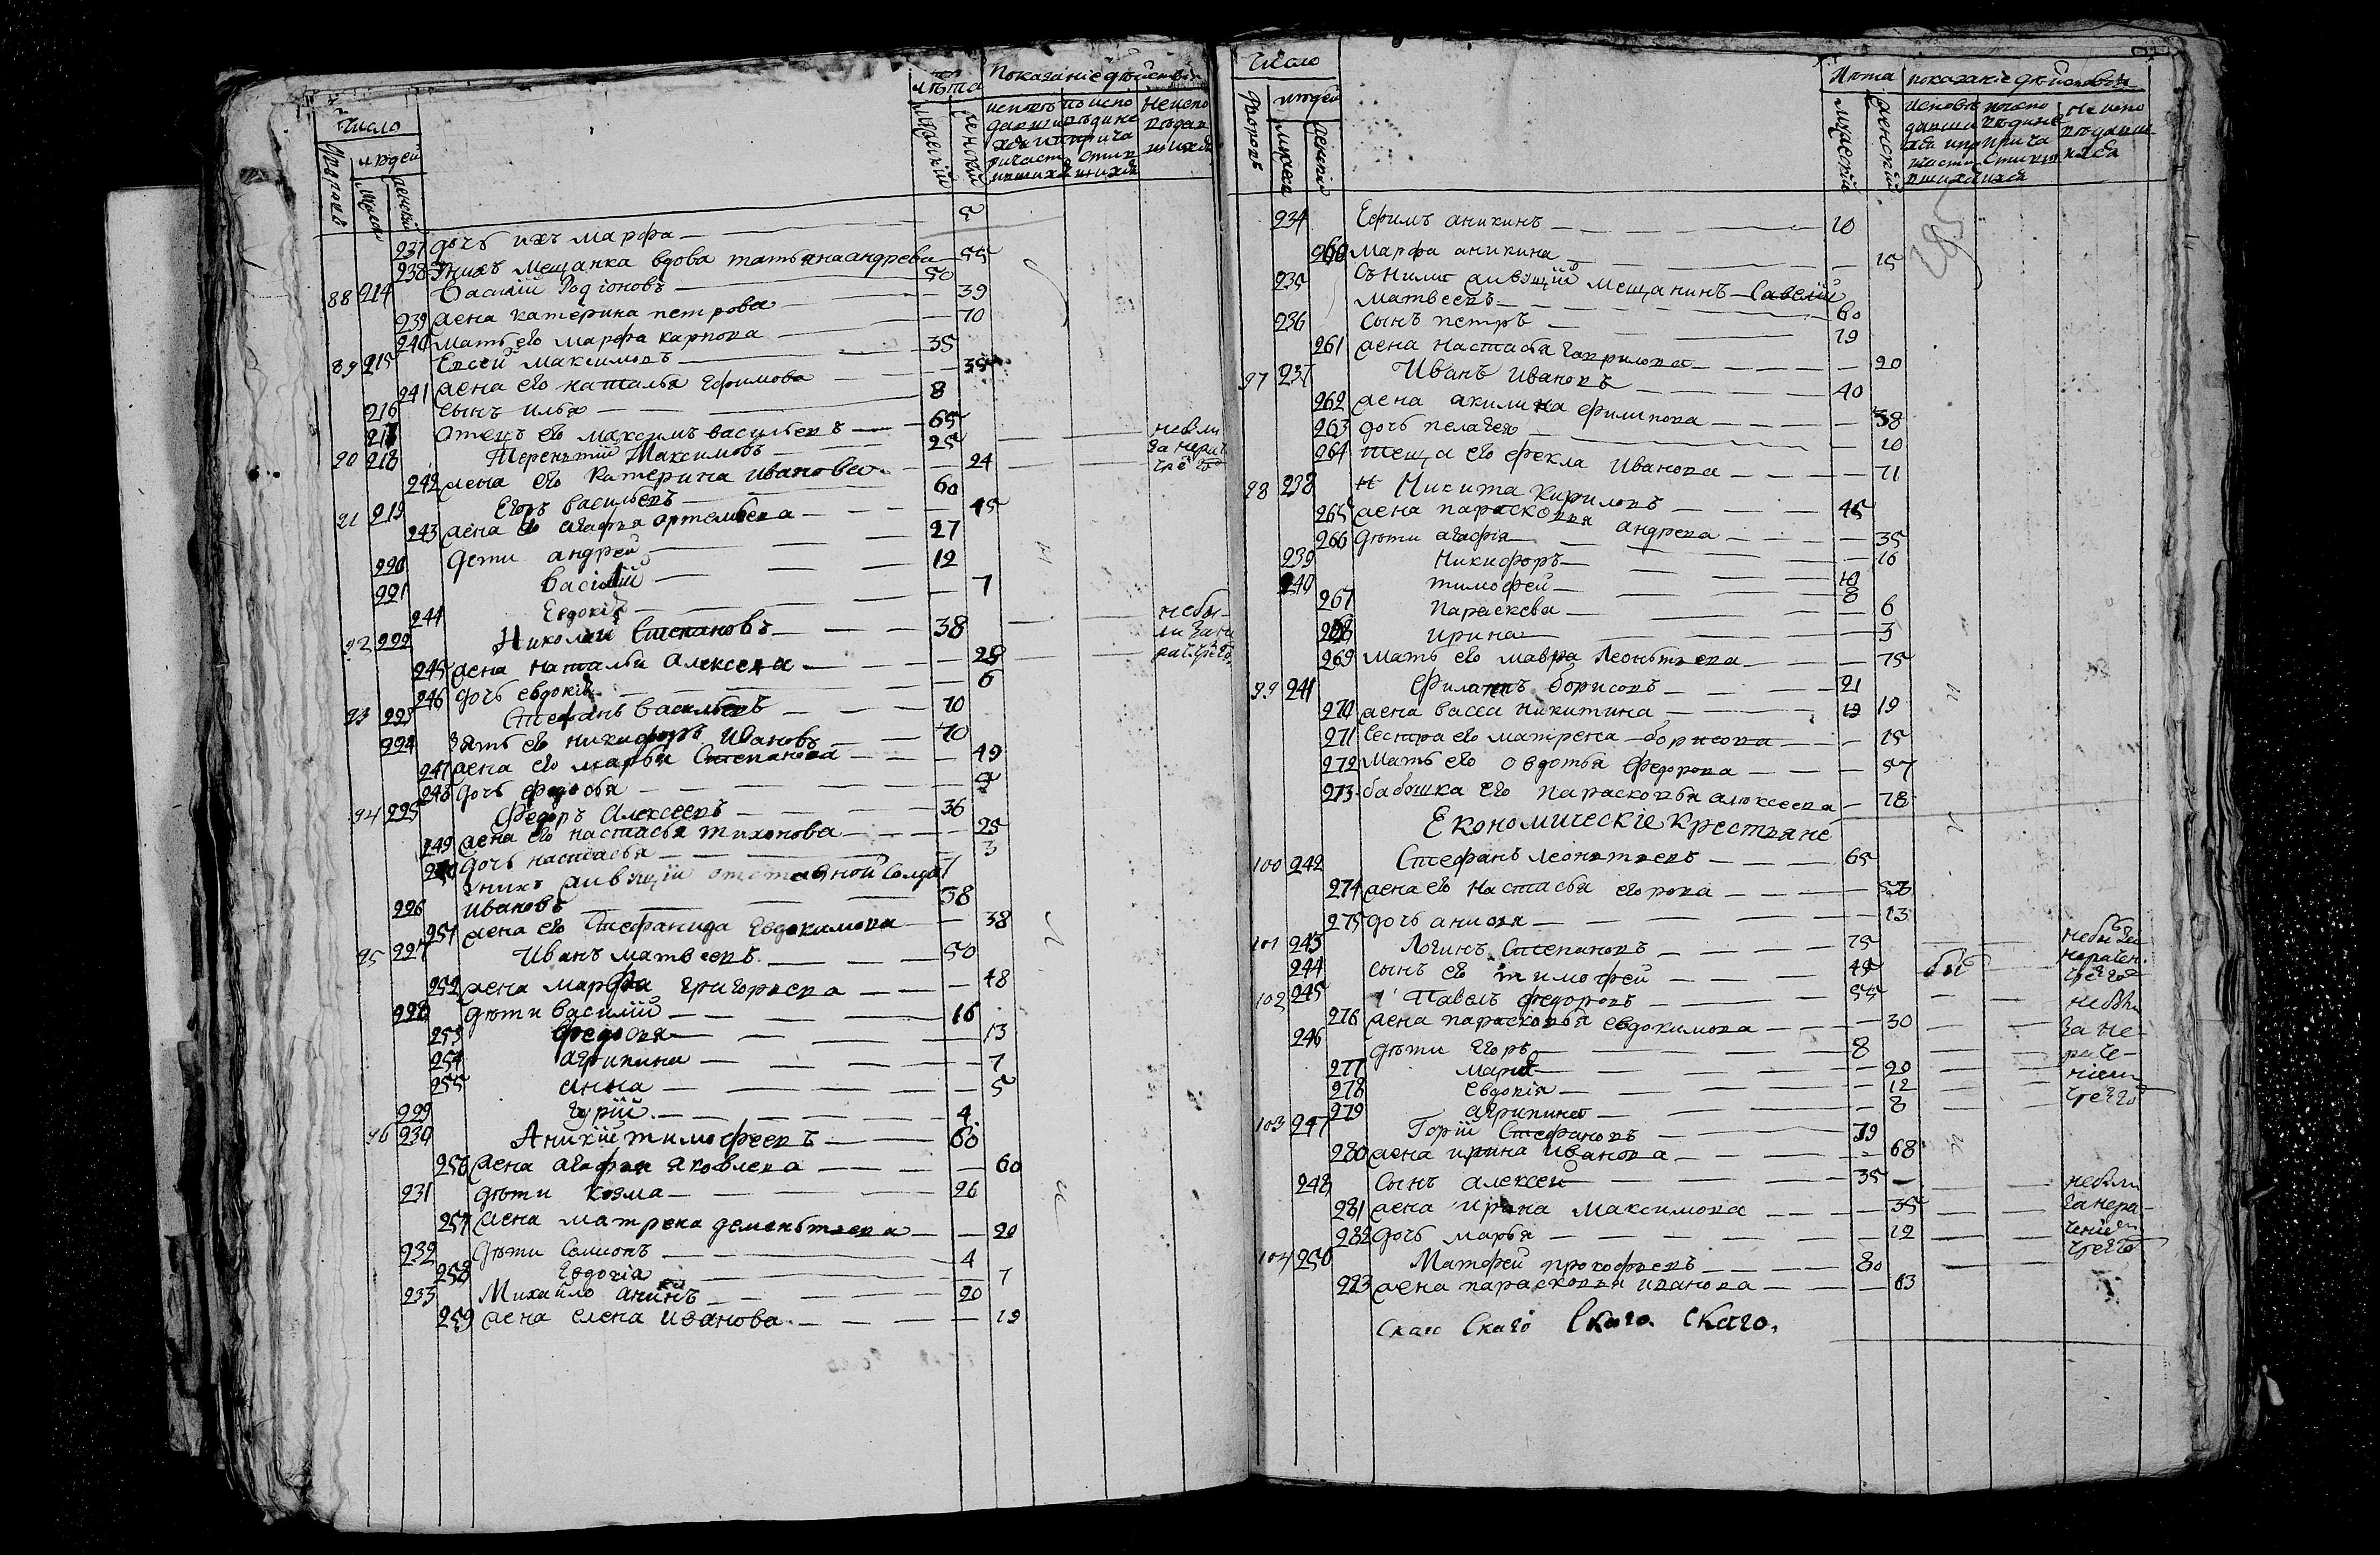 Число
Лѣта Показаніе дѣйства
дворовъ людей
мужск женскій
мужескій женскій
исповѣдавшихся и причастившихся
по исповѣди не причастившихся
не исповѣдавшихся
237 дочь ихъ марфа — 5
238 У нихъ мещанка вдова татьяна андрева — 55
88 214 Василій Родіоновъ — 50
239 жена катерина петрова — 39
240 мать его марфа карпова — 70
89 215 Евсей максимовъ — 35
241 жена его наталья Ефимова — 35
216 сынъ илья — 8
217 отецъ его максимъ васильевъ — 65
90 218 Терентій Максимовъ — 25
242 жена его катерина иванова — 24
91 219 Егоръ васильевъ — 60
243 жена его агафья артемьева — 45
220 дети андрей — 27
221 Василій — 12
244 Евдокія — 7
92 222 Николай Степановъ — 38
245 жена наталья алексева — 28
246 дочь евдокія — 6
93 223 Стефанъ васильевъ — 70
224 зять его никифоръ ивановъ — 40
247 жена его марья Степанова — 49
248 дочь федосья
94 225 Федоръ Алексеевъ — 36
249 жена его настасья тихонова — 25
250 дочь настасья — 3
у нихъ живущій отставной солдатъ
226 ивановъ — 38
251 жена его Стефанида Евдокимова — 38
95 227 Иванъ матвеевъ — 50
252 жена марфа григорьева — 48
228 дѣти василій — 16
253 федосья — 13
254 агрипина — 7
255 анна — 5
229 гурій — 4
96 230 Аникій тимофеевъ — 60
256 жена агафья яковлева — 60
231 дѣти козма — 26
257 жена матрена дементьева — 20
232 дѣти Самсонъ — 4
258 Евдокія — 7
233 Михайло аникинъ — 20
259 жена елена иванова — 19
Число
Лѣта показаніе дѣйства
дворовъ людей
мужеск женскій
мужескій женскій
185
234 Ефимъ аникинъ — 10
260 марфа аникина — 15
235 съ ними живущій мещанинъ Савелій
матвеевъ — 60
236 сынъ петръ — 19
261 жена настасья гаврилова — 20
97 237 Иванъ ивановъ — 40
262 жена акилина филипова — 38
263 дочь пелагея — 10
264 теща его фекла иванова — 71
98 238 Никита кириловъ — 45
265 жена парасковья андрева — 35
266 дѣти агафія — 16
239 Никифоръ
240 тимофей — 8
267 параскева — 6
268 ирина — 3
269 мать его мавра леонтьева — 75
99 241 Филатъ борисовъ — 21
270 жена васса никитина — 19
271 сестра его матрена борисова — 15
272 мать его овдотья федорова — 57
273 бабошка его парасковья алексеева — 78
Економическіе крестьяне
100 242 Стефанъ леонтьевъ — 65
274 жена его настасья егорова
275 дочь анисья — 13
101 243 Логинъ Степановъ — 75
244 сынъ его тимофей — 45
102 245 Павелъ федоровъ — 55
276 жена парасковья евдокимова — 30
246 дѣти егоръ — 8
277 марья — 20
278 евдокія — 12
279 агрипина — 8
103 247 Горій Стефановъ
280 жена ирина иванова — 68
248 сынъ алексей — 35
281 жена ирина максимова — 35
282 дочь марья — 12
104 250 Матфей прокофьевъ — 80
283 жена парасковья иванова — 63
Скаго Скаго Скаго. Скаго.